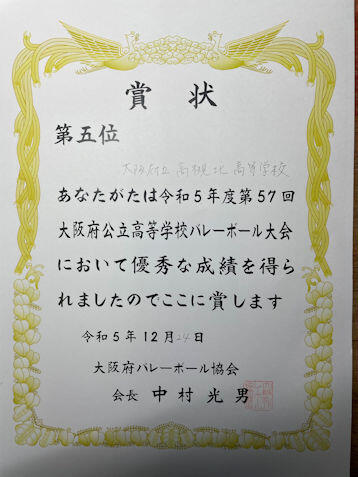 賞状
第五位
大阪府立高槻北高等学校
あなたがたは令和5年度第57回
大阪府公立高等学校バレーボール大会
において優秀な成績を得ら
れましたのでここに賞します
令和5年12月24日
大阪府バレーボール協会
会長 中村光男